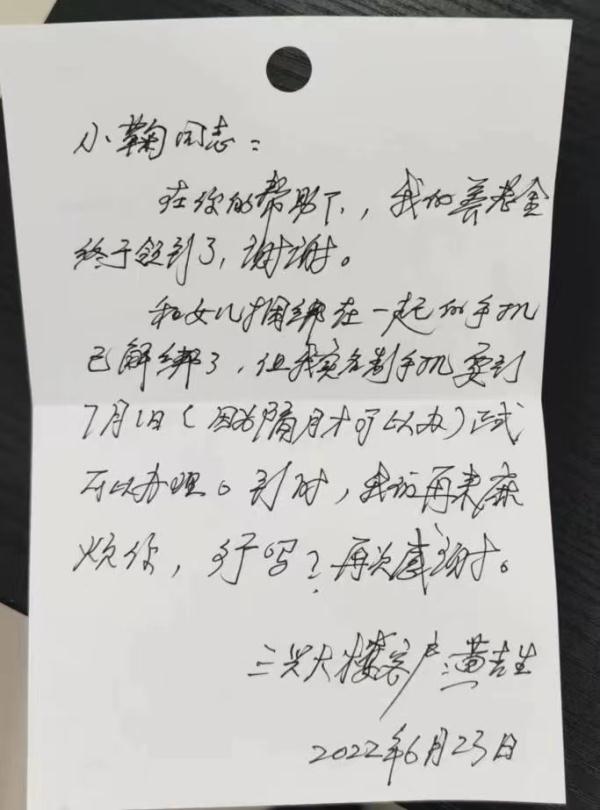 小鞠同志：
在你的帮助下，我的养老金
终于领到了，谢谢。
和女儿捆绑在一起的手机
已解绑了，但我实名制手机要到
7月1日（因为隔月才可以办）正式
可以办理。到时，我再来麻
烦你，行吗？再次感谢。
三兴大楼客户黄吉生
2022年6月23日